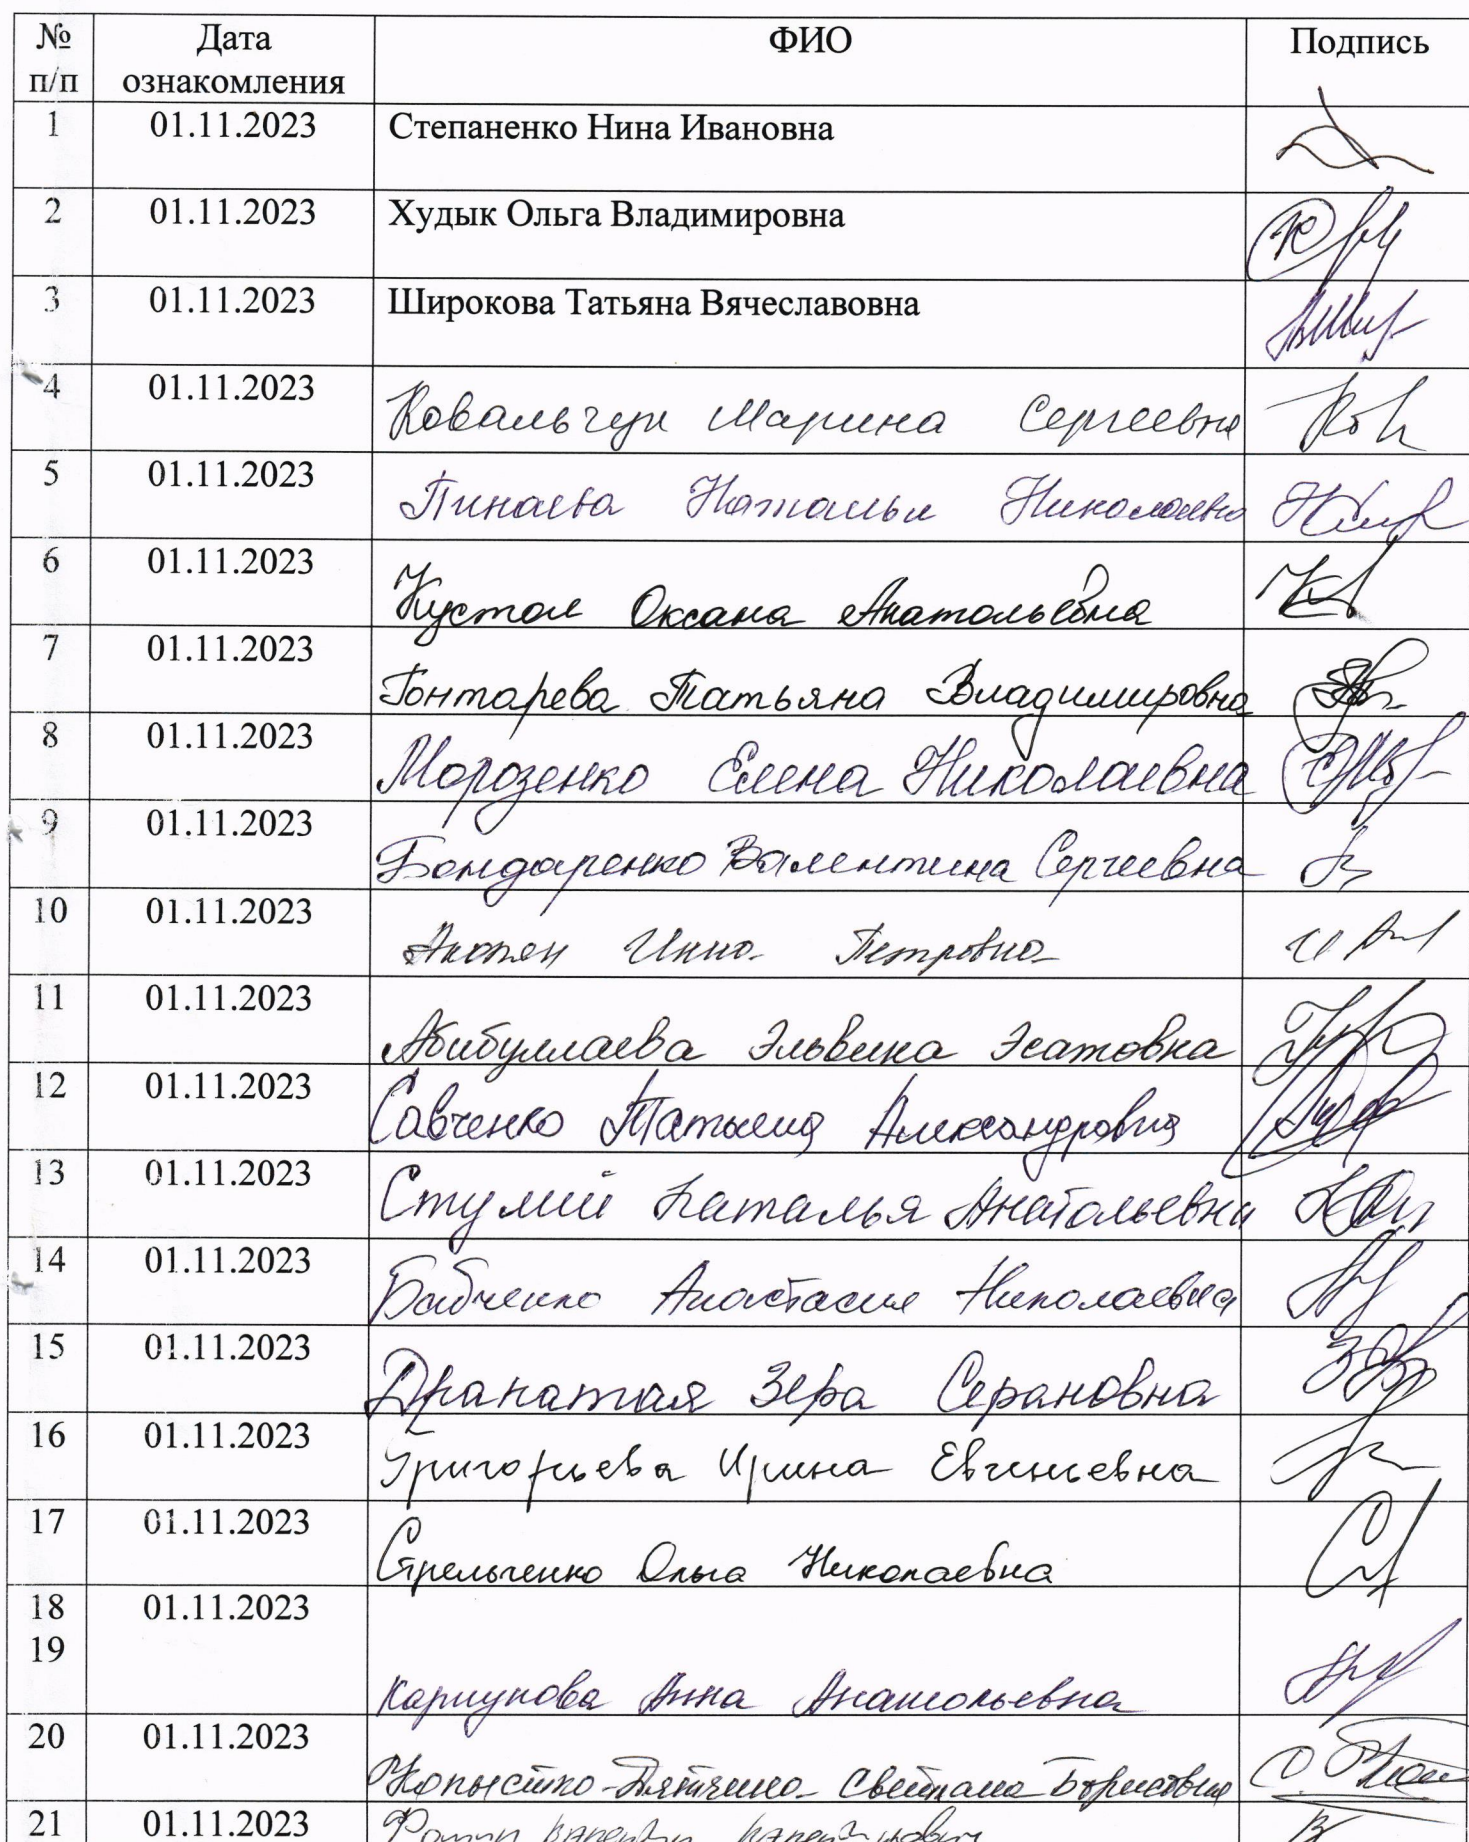 № п/п Дата ознакомления ФИО Подпись
1 01.11.2023 Степаненко Нина Ивановна
2 01.11.2023 Худык Ольга Владимировна
3 01.11.2023 Широкова Татьяна Вячеславовна
4 01.11.2023 Ковальчук Марина Сергеевна
5 01.11.2023 Пинаева Наталья Николаевна
6 01.11.2023 Кустол Оксана Анатольевна
7 01.11.2023 Гонтарева Татьяна Владимировна
8 01.11.2023 Морозенко Елена Николаевна
9 01.11.2023 Бондаренко Валентина Сергеевна
10 01.11.2023 Акопян Инна Петровна
11 01.11.2023 Абибуллаева Эльвина Эсатовна
12 01.11.2023 Савченко Татьяна Александровна
13 01.11.2023 Стулий Наталья Анатольевна
14 01.11.2023 Бабченко Анастасия Николаевна
15 01.11.2023 Зера
16 01.11.2023 Григорьева Ирина Евгеньевна
17 01.11.2023 Стрельченко Ольга Николаевна
18 01.11.2023
19 Анна Анатольевна
20 01.11.2023 Светлана Борисовна
21 01.11.2023